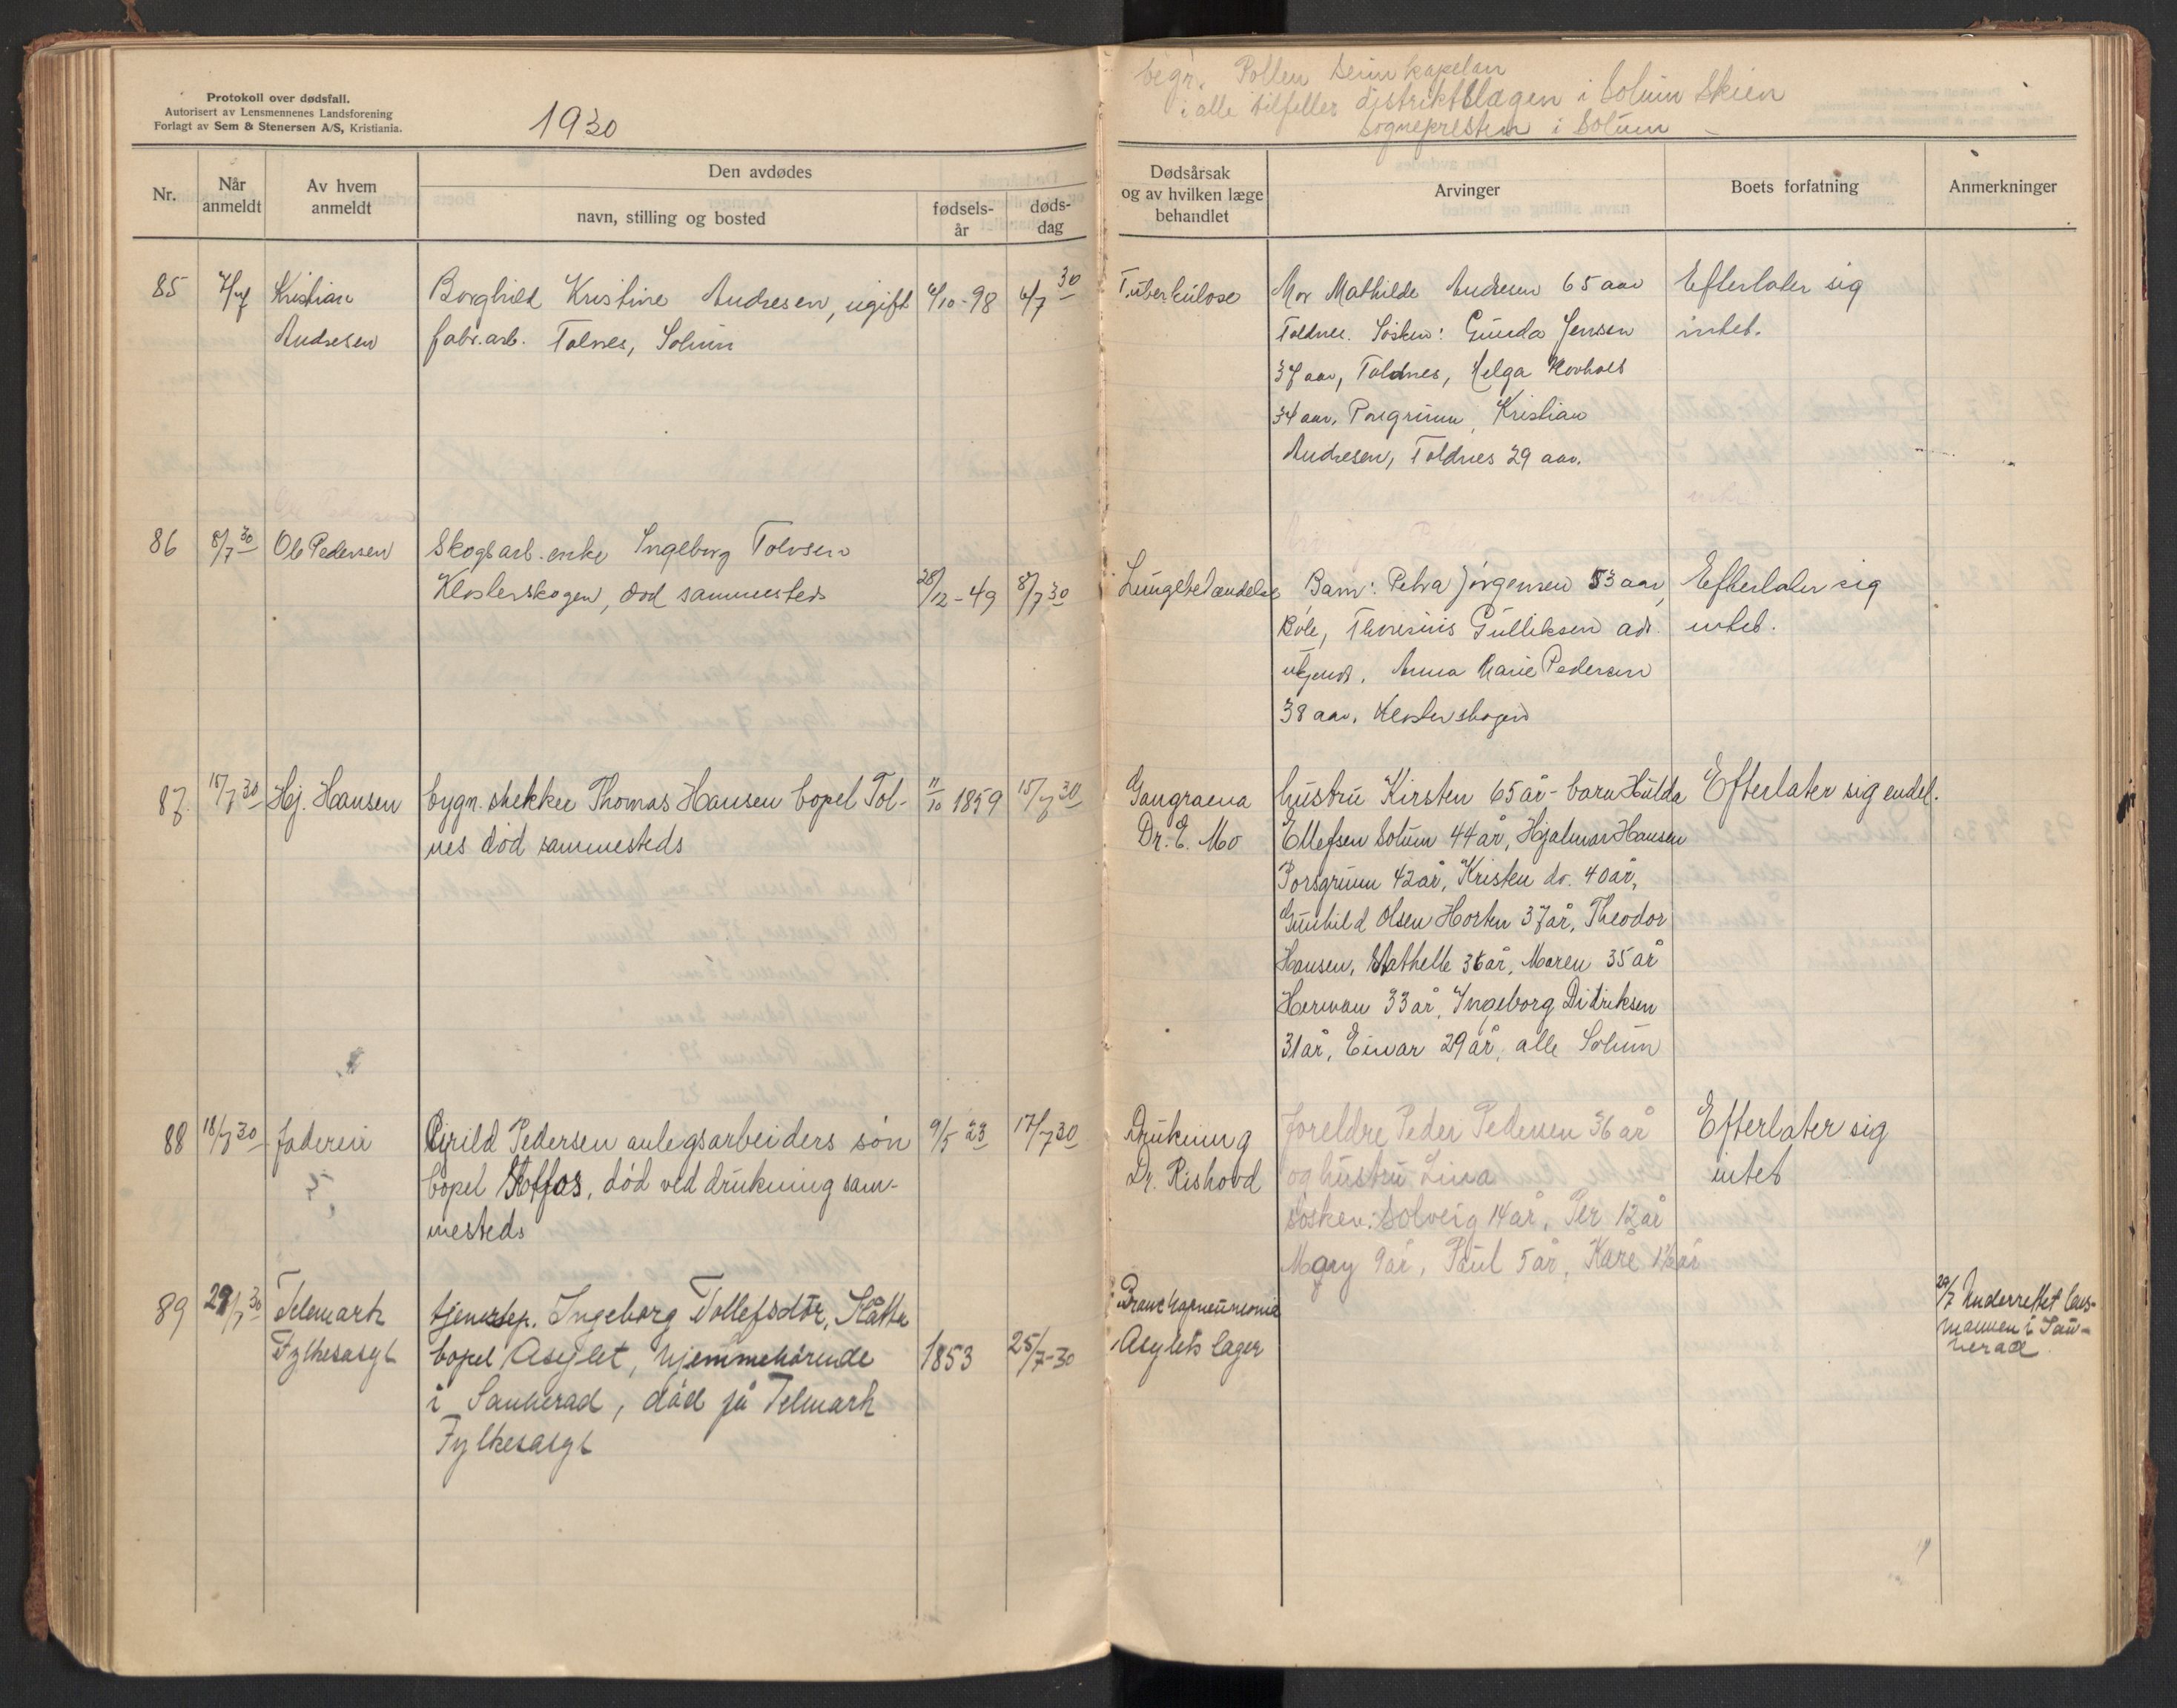 Protokoll over dødsfall.
Autorisert av Lensmennenes Landsforening
Forlagt av Sem & Stenersen A/S, Kristiania.
1930
Nr.
Når anmeldt
Av hvem anmeldt
Den avdødes
navn, stilling og bosted
fødsels-år
døds-dag
85 7/7 Kristian Borghild Kristine Andresen, ugift 6/10-98 6/7 30
Andresen fabr.arb. Tolnes, Solum
86 8/7 30 Ole Pedersen Skogsarb. enke Ingeborg Tolvsen
Klosterskogen, død sammesteds 28/12-49 8/7 30
87. 15/7 30 Hj. Hansen bygn. snekker Thomas Hansen bopel Tol- 11/10 1859 15/7 30
nes død sammesteds
88 18/7 30 faderen Cyrild Pedersen anlegsarbeiders søn 9/5 23 17/7 30
bopel Støffos, død ved drukning sam-
mesteds
89 29/7 30 Telemark tjenestep. Ingeborg Tollefsdtr, Kåtta
Fylkesasyl bopel Asylet, hjemmehørende 1853 25/7-30
i Sauherad, død på Telmark
Fylkesasyl
begr.
i alle tilfeller distriktslægen i Solum Skien
Sognepresten i Solum
Dødsårsak og av hvilken læge behandlet
Arvinger
Boets forfatning
Anmerkninger
Tuberkulose Mor Mathilde Andresen 65 aar Efterlater sig
Toldnes. Søsken: Gunda Jensen intet.
37 aar, Toldnes, Helga
34 aar, Porsgrunn, Kristian
Andresen, Toldnes 29 aar.
Lungebetændelse Barn: Petra Jørgensen 53 aar, Efterlater sig
Bøle, Thorsinius Gulliksen adr. intet.
ukjendt, Anna Marie Pedersen
38 aar, Klosterskogen
Gangraena hustru Kirsten 65 år - barn Hulda Efterlater sig endel.
Dr. E. Mo Ellefsen Solum 44 år, Hjalmar Hansen
Porsgrunn 42 år, Kristen do. 40 år,
Gunhild Olsen Horten 37 år, Theodor
Hansen, Stathelle 36 år, Maren 35 år
Herman 33 år, Ingeborg Didriksen
31 år, Einar 29 år, alle Solum
Drukning Foreldre Peder Pedersen 36 år Efterlater sig
Dr. Rishovd og hustru Lina intet
Søsken: Solveig 14 år, Per 12 år
Mary 9 år, Paul 5 år, Kåre 1 1/2 år
Bronchopneumonie
Asylets læger
29/7 Underrettet lens-
mannen i Sau-
herad